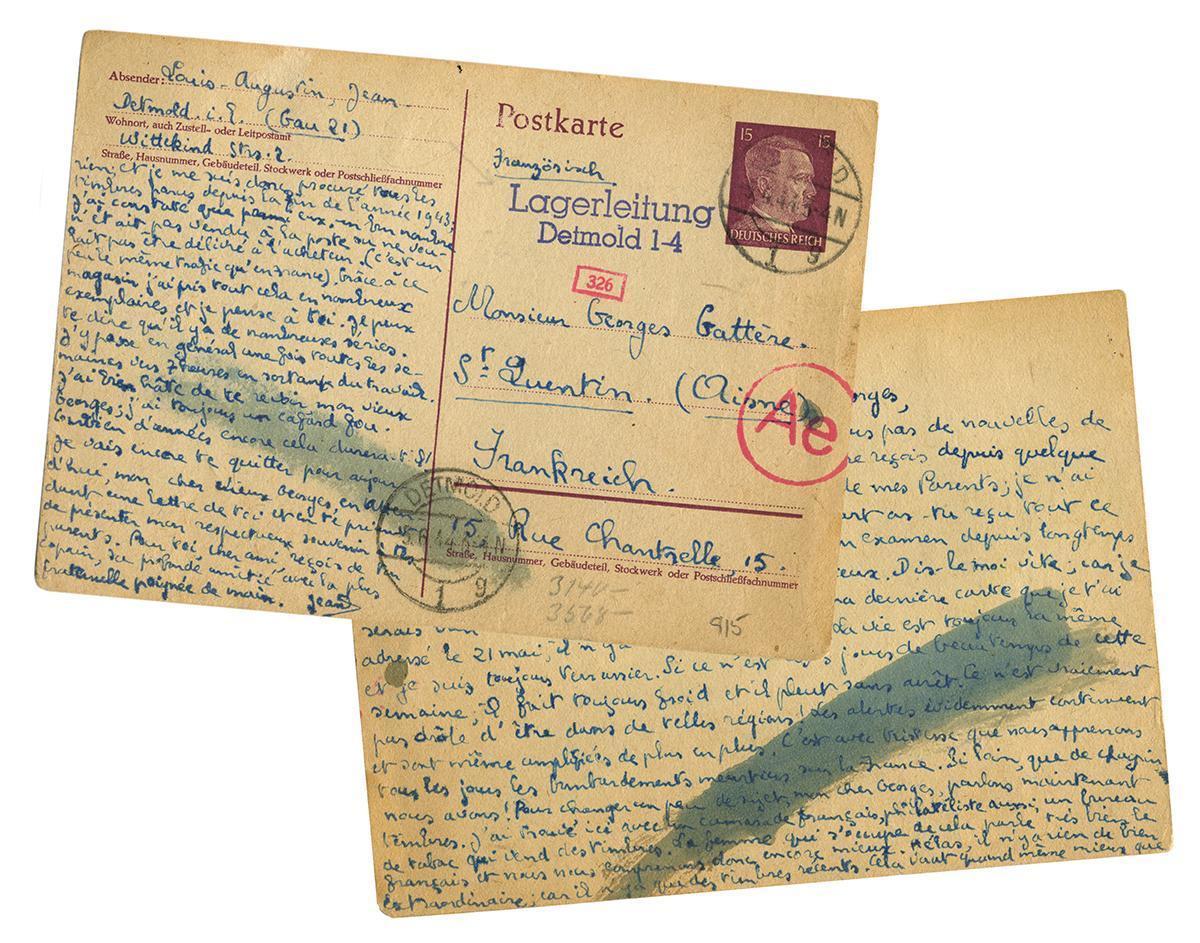 Absender: Louis-Augustin, Jean
Detmold i. L. (Gau 21)
Wohnort, auch Zustell- oder Leitpostamt
Wittekind Strs. 2.
Straße, Hausnummer, Gebäudeteil, Stockwerk oder Postschließfachnummer
rien, et je me suis donc procuré tous les
timbres parus depuis la fin de l'année 1943;
j'ai constaté que parmi eux, un bon nombre
n'était pas vendu à la poste ou ne vou-
lait pas être délivré à l'acheteur. (c'est un
peu le même trafic qu'en France). Grâce à ce
magasin j'ai pris tout cela en nombreux
exemplaires et je pense à toi. Je peux
te dire qu'il y a de nombreuses séries.
J'y passe en général une fois toutes les se-
maines vers 7 heures en sortant du travail.
J'ai bien hâte de te revoir mon vieux
Georges; j'ai toujours un cafard fou.
Combien d'années encore cela durera-t-il?
Je vais encore te quitter pour aujour
d'hui, mon cher vieux Georges, en
dant une lettre de toi et en te priant
de présenter mon respectueux souvenir à
parents. Pour toi, cher ami, reçois de
copain, sa profonde amitié avec la plus
fraternelle poignée de main. Jean
Postkarte
Französisch
Lagerleitung
Detmold 1-4
15 15
DEUTSCHES REICH
326
Monsieur Georges Gattère.
St Quentin. (Aisne)
Ae
Frankreich.
15 Rue Chantrelle, 15.
Straße, Hausnummer, Gebäudeteil, Stockwerk oder Postschließfachnummer
DETMOLD
1 g
3140-
3568-
915
rges,
us pas de nouvelles de
e reçois depuis quelque
de mes Parents; je n'ai
as-tu reçu tout ce
n examen depuis longtemps
eux. Dis-le moi vite; car je
ma dernière carte que je t'ai
adressé le 21 mai, il n'y a La vie est toujours la même
et je suis toujours terrassier. Si ce n'est jours de beau temps de cette
semaine, il fait toujours froid et il pleut sans arrêt. Ce n'est vraiment
pas drôle d'être dans de telles régions! Les alertes évidemment continuent
et sont même amplifiées de plus en plus. C'est avec tristesse que nous apprenons
tous les jours les bombardements meurtriers sur la France. Si loin, que de chagrin
nous avons! Pour changer un peu de sujets mon cher Georges, parlons maintenant
timbres. J'ai trouvé ici avec un camarade français, philatéliste aussi, un bureau
de tabac qui vend des timbres. La femme qui s'occupe de cela parle très bien le
français et nous nous comprenons donc encore mieux. Hélas, il n'y a rien de bien
extraordinaire; car il n'y a que des timbres récents. Cela vaut quand même mieux que